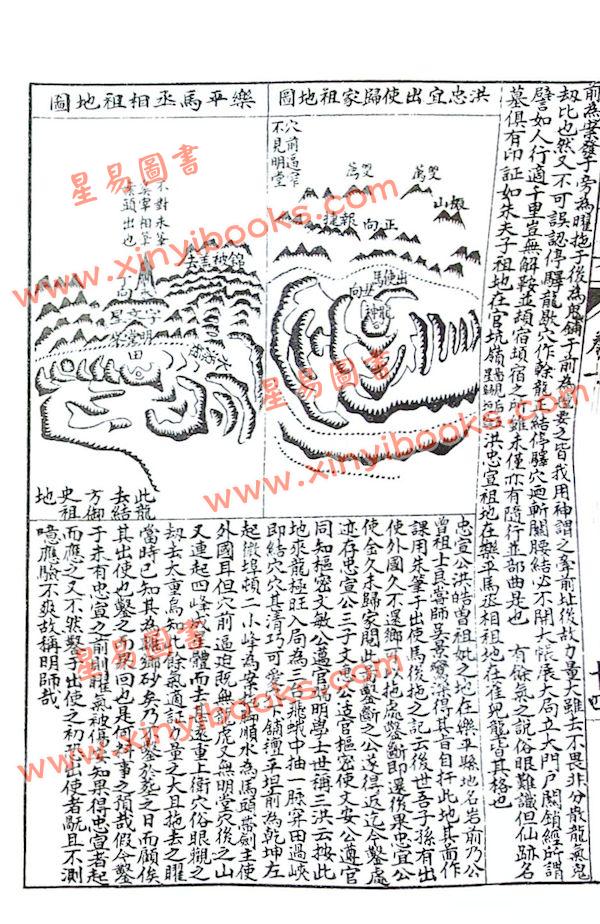 前為案發于旁為曜拖于後為鬼鋪于前為氊要之皆我用神謂之牽前扯後故力量大雖去不畏非分散龍氣鬼
刼比也然又不可誤認停驛龍歇穴作餘龍正結停驛穴迥斬關腰結必不開大帳展大局立大門戶關鎖經所謂
譬如人行適千里豈無解鞍並頓宿頓宿之所雖未僅亦有隨行並部曲是也 有餘氣之說俗眼難識但仙跡名
墓俱有印証如朱夫子祖地在官坑嶺洪忠宣祖地在樂平馬丞相祖地在崔兒龍皆其格也
十四
洪忠宣出使歸家祖地圖
穴前逼窄
不見明堂
雙薦
雙薦
正向
報捷
出使馬
樂平馬丞相祖地圖
不對朱筆
丁向
文星
明堂
田
此龍
去結
方御
史祖
地
忠宣公洪皓曾祖妣之地在樂平縣地名岩前乃公
曾祖士良嘗師吳景鸞深得其旨自扦此地其面作
課用朱筆于出使馬後拖之記云後世吾子孫有出
使外國久不還鄉可以拖處鑿斷即還後果忠宣公
使金久未歸家閱此鑿斷之公遂得返迄今鑿處
亦存忠宣公三子文惠公适官樞密使文安公遵官
同知樞密文敏公邁官端明學士世稱三洪云按此
地亥龍極旺入局為三台飛蛾中抽一脉穿田過峽
即結穴其清巧可愛穴下鋪氊平坦前為乾坤左
起微埠頓二小峰為案順水為馬頭帶劍主使
外國耳但穴前逼迮既無龍虎又無明堂穴後之山
又連起四峰成體而去高遠重上衛穴俗眼觀之
刼去大重烏知其餘氣適証力量之大且拖去之曜
當時已知其為離鄉砂矣乃不鑿於葬之日而顧俟
其出使也鑿之而果回也是何前事之預哉假令鑿
于未有忠宣之前則曜氣被傷安知果得忠宣者起
而應之又不然鑿于出使之初出使者亂且不測
噫應驗不爽故稱明師哉
星易圖書
www.xinyibooks.com
星易圖書
www.xinyibooks.com
星易圖書
www.xinyibooks.com